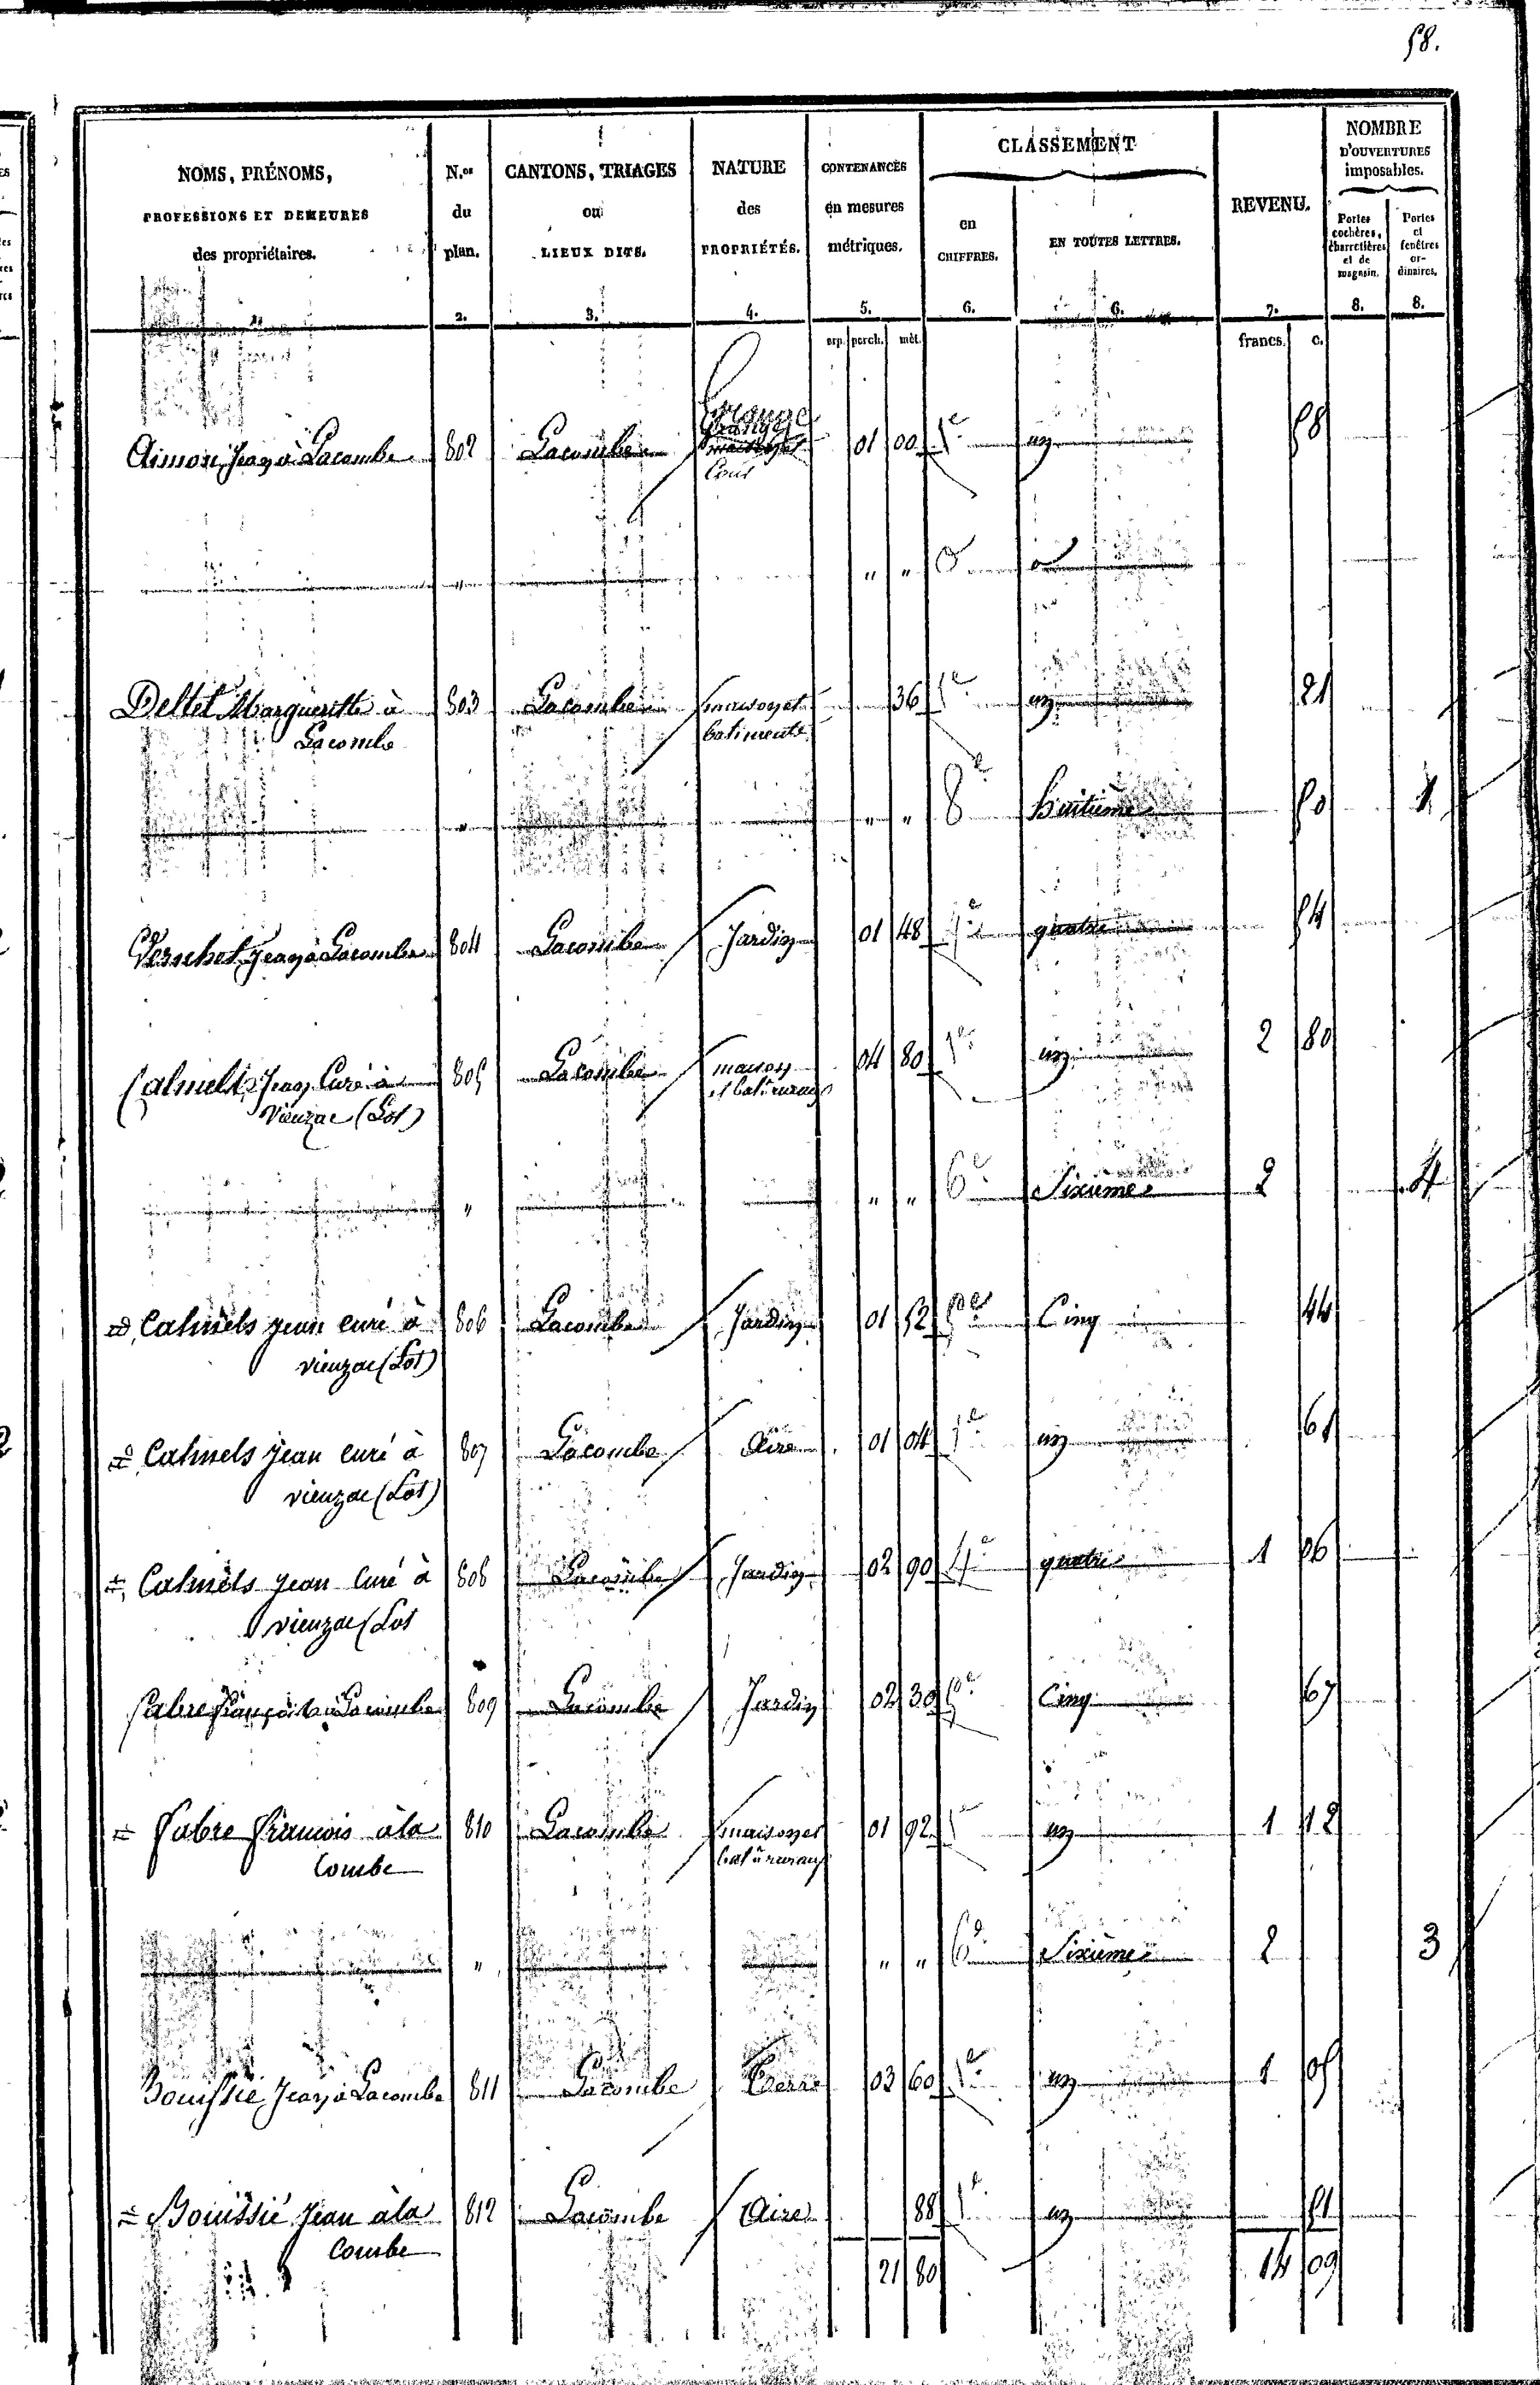 58.
NOMS, PRÉNOMS, PROFESSIONS ET DEMEURES des propriétaires. N.os du plan. CANTONS, TRIAGES ou LIEUX DITS. NATURE des PROPRIÉTÉS. CONTENANCES en mesures métriques. CLASSEMENT en CHIFFRES. EN TOUTES LETTRES. REVENU. NOMBRE D'OUVERTURES imposables. Portes cochères, charretières et de magasin. Portes et fenêtres ordinaires.
2. 3. 4. 5. 6. 6. 7. 8. 8.
arp. perch. mèt. francs. c.
Grange
Aimon Jean à Lacombe 802 Lacombe 01 00 1e un 58
Cour
" " "
Deltel Margueritte à 803 Lacombe maison et 36 1e un 21
Lacombe batiments
" " " 8e huitieme 50 1
Jean à Lacombe 804 Lacombe Jardin 01 48 4e quatre 54
Calmels Jean Curé à 805 Lacombe maison 04 80 1e un 2 80
Vieuzac (Lot) et bat. ruraux
" " " 6e Sixieme 2 4
Calmels jean curé à 806 Lacombe Jardin 01 52 5e Cinq 44
vieuzac (Lot)
Calmels jean curé à 807 Lacombe Aire 01 04 1e un 61
vieuzac (Lot)
Calmels jean Curé à 808 Lacombe Jardin 02 90 4e quatre 1 06
vieuzac (Lot
Fabre françois à Lacombe 809 Lacombe Jardin 02 30 5e Cinq 67
Fabre françois à la 810 Lacombe maison et 01 92 1e un 1 12
Combe bat. ruraux
" " " 6e Sixieme 2 3
Bouissié Jean à Lacombe 811 Lacombe Terre 03 60 1e un 1 05
Bouissié Jean à la 812 Lacombe Aire 88 1e un 51
Combe
21 80 14 09